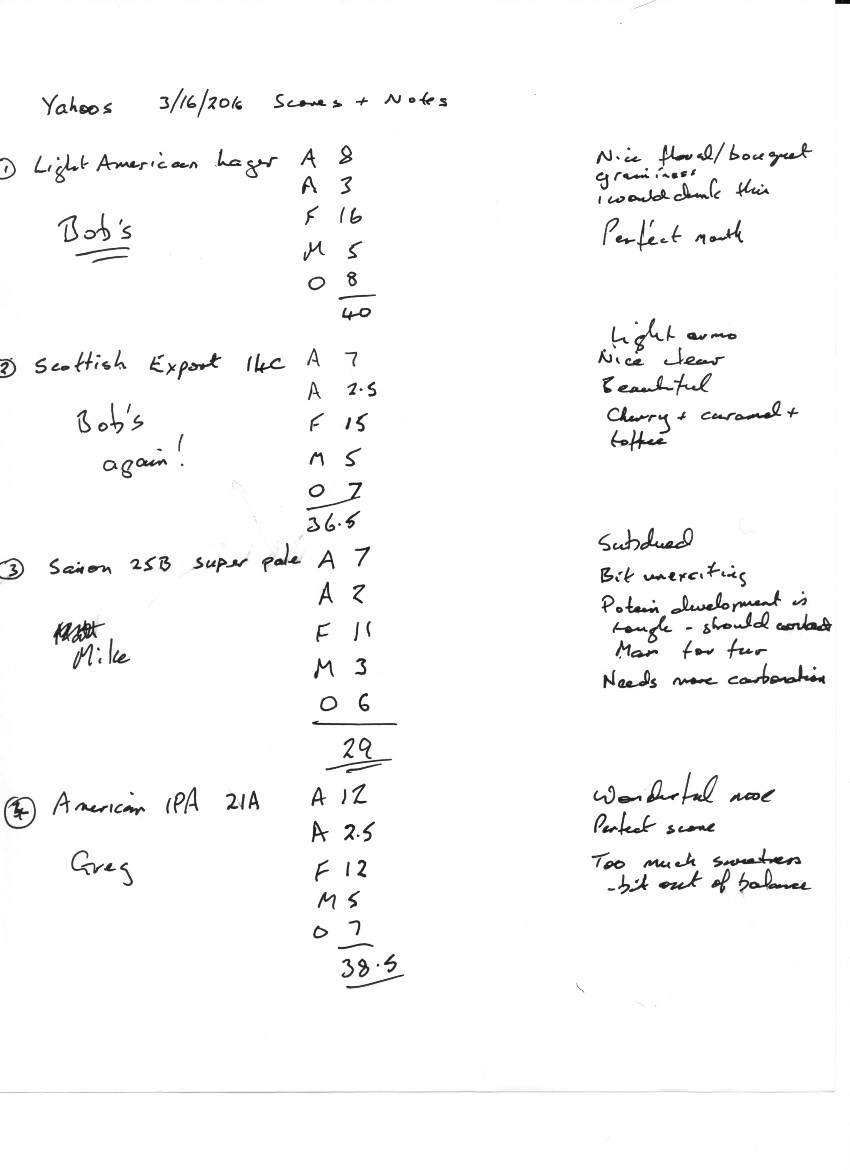 Yahoos 3/16/2016 Scores + Notes
1 Light American Lager A 8 Nice floral/bouquet
graininess
A 3 I would drink this
Bob's F 16 Perfect mouth
M 5
O 8
40
Light aroma
2 Scottish Export 14C A 7 Nice clear
A 2.5 Beautiful
Bob's F 15 Cherry + caramel +
toffee
again! M 5
O 7
36.5
Subdued
3 Saison 25B super pale A 7 Bit unexciting
A 2 Potein development is
F 11 tough - should contact
Mike M 3 Needs more carbonation
O 6
29
4 American IPA 21A A 12 Wonderful nose
A 2.5 Perfect score
Greg F 12 Too much sweetness
- bit out of balance
M 5
O 7
38.5